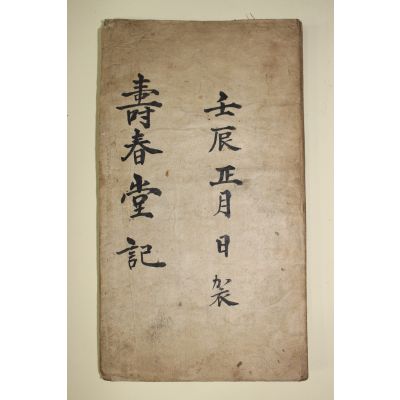 壬辰正月日袈
壽春堂記